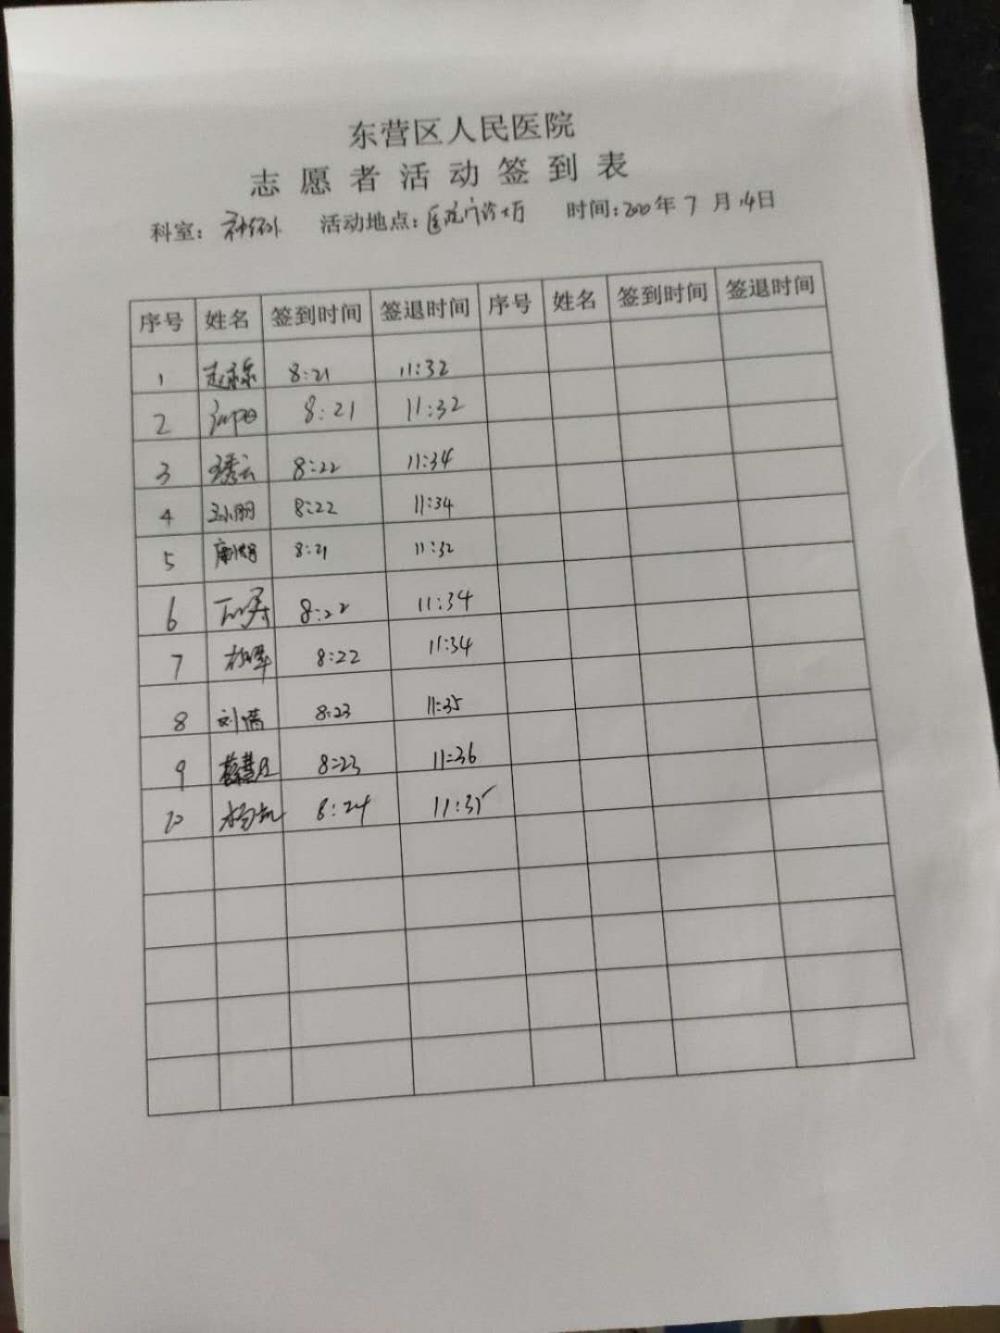 东营区人民医院
志愿者活动签到表
科室: 神经外 活动地点: 医院门诊大厅 时间: 2020年7月14日
序号 姓名 签到时间 签退时间 序号 姓名 签到时间 签退时间
1 8:21 11:32
2 8:21 11:32
3 8:22 11:34
4 8:22 11:34
5 8:21 11:32
6 8:22 11:34
7 8:22 11:34
8 刘倩 8:23 11:35
9 8:23 11:36
10 8:24 11:35